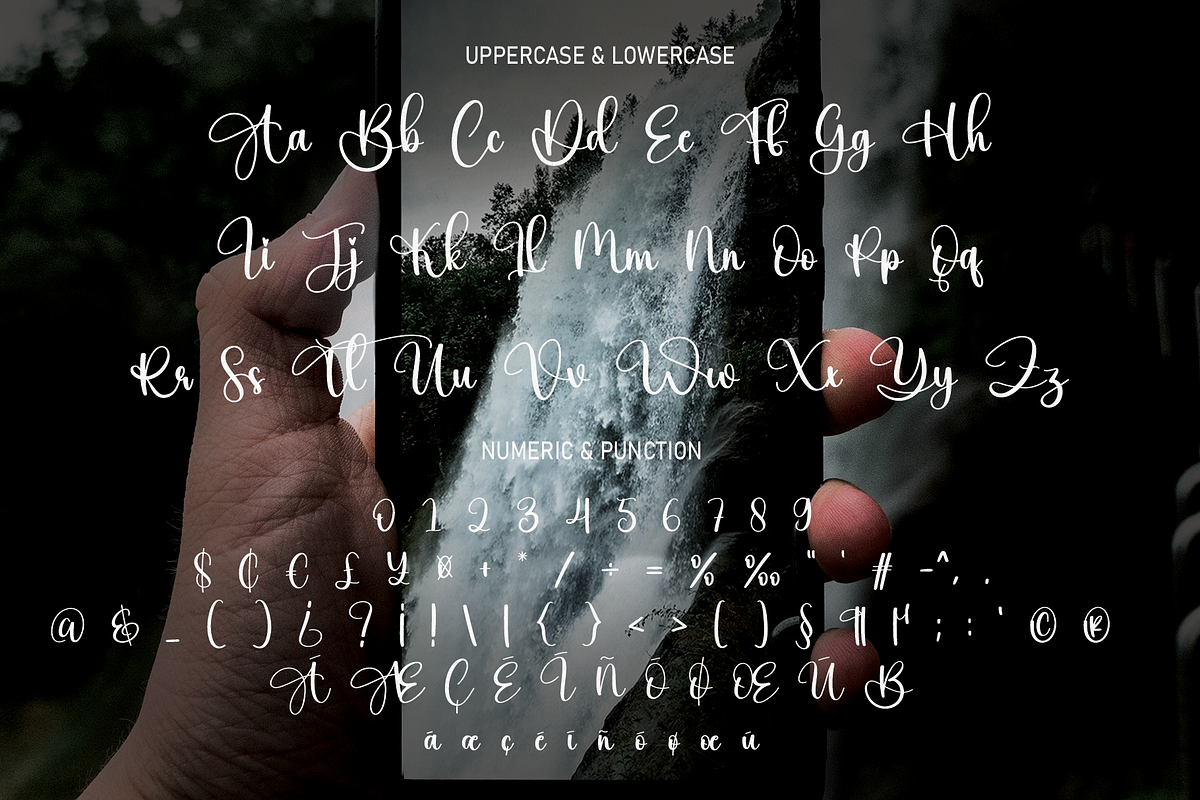 UPPERCASE & LOWERCASE
Aa Bb Cc Dd Ee Ff Gg Hh
Ii Jj Kk Ll Mm Nn Oo Pp Qq
Rr Ss Tt Uu Vv Ww Xx Yy Zz
NUMERIC & PUNCTION
0 1 2 3 4 5 6 7 8 9
$ ¢ € £ ¥ ¤ + * / ÷ = % ‰ " ' # - ^ , .
@ & _ ( ) ¿ ? ¡ ! \ | { } < > ( ) § ¶ µ ; : ‛ © ®
Á Æ Ç É Í Ñ Ó Ø Œ Ú ß
á æ ç é í ñ ó ø œ ú